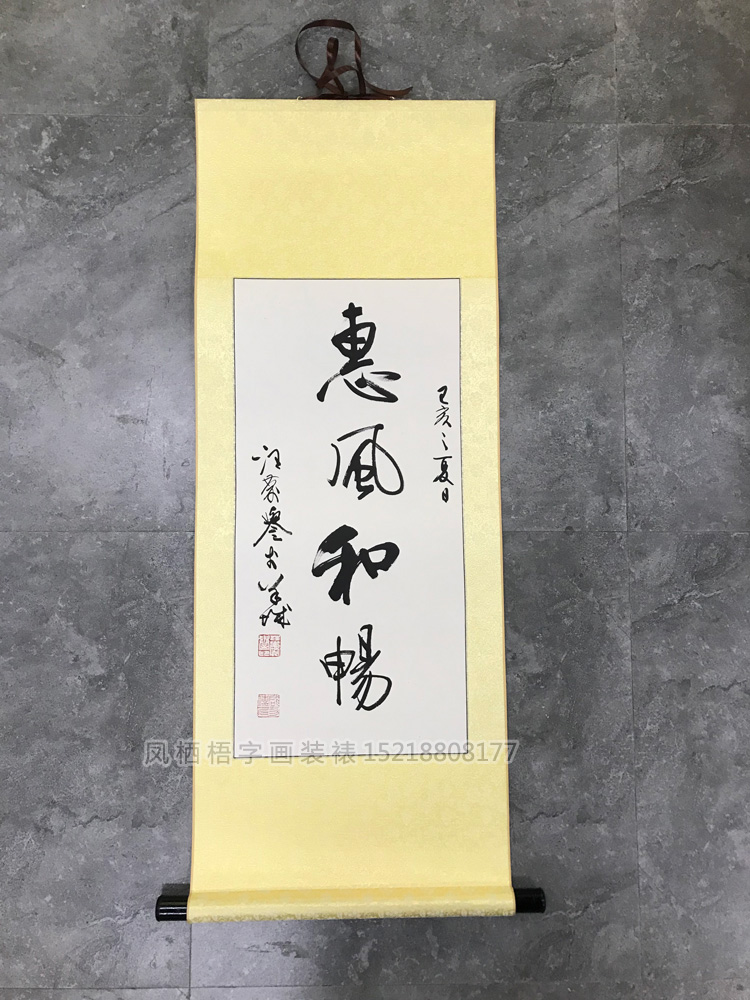 己亥之夏日
惠风和暢
于羊城
凤栖梧字画装裱15218808177